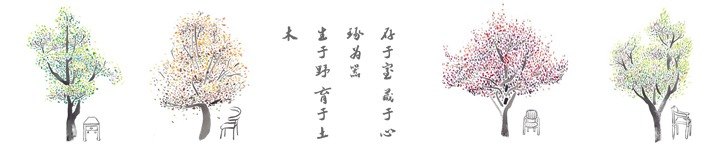 木
生于野 育于土
琢为器
存于室 藏于心